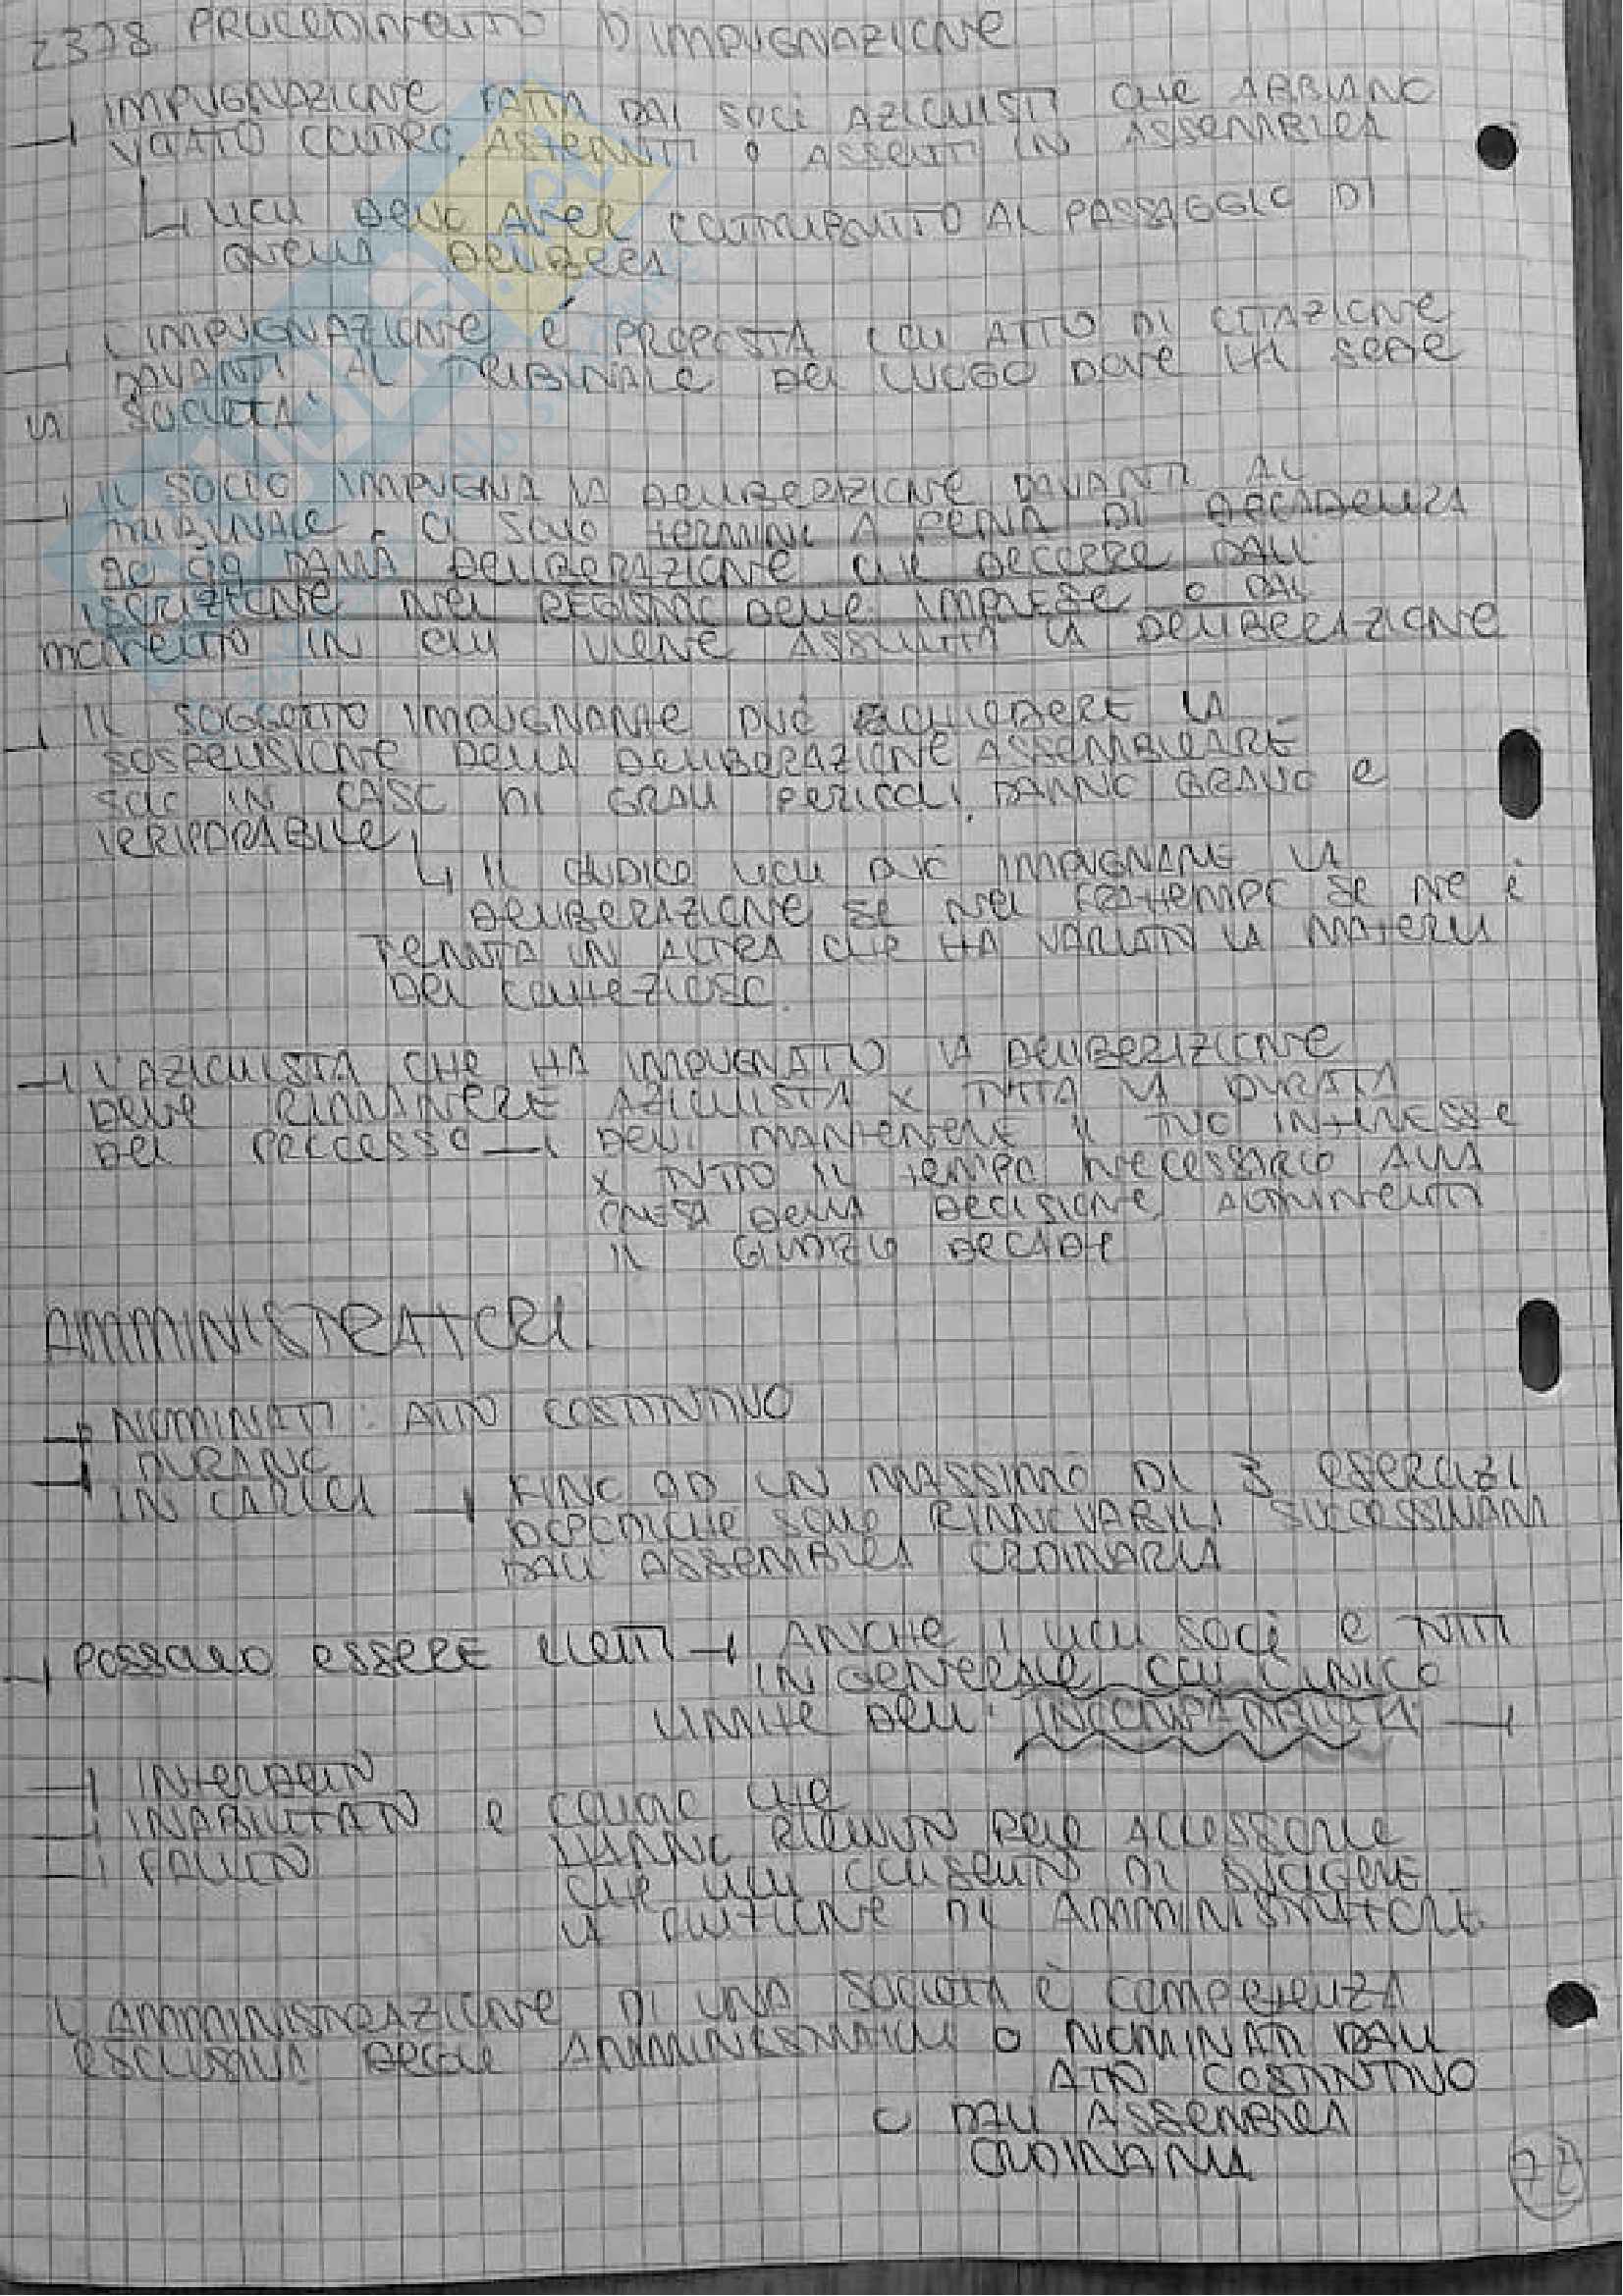 2378 PROCEDIMENTO D'IMPUGNAZIONE
→ IMPUGNAZIONE FATTA DAI SOCI AZIONISTI CHE ABBIANO
VOTATO CONTRO, ASTENUTI O ASSENTI IN ASSEMBLEA
↳ NON DEVO AVER CONTRIBUITO AL PASSAGGIO DI
QUELLA DELIBERA
→ L'IMPUGNAZIONE È PROPOSTA CON ATTO DI CITAZIONE
DAVANTI AL TRIBUNALE DEL LUOGO DOVE HA SEDE
LA SOCIETA'
→ IL SOCIO IMPUGNA LA DELIBERAZIONE DAVANTI AL
TRIBUNALE. CI SONO TERMINI A PENA DI DECADENZA
90 GG DALLA DELIBERAZIONE CHE DECORRE DALL'
ISCRIZIONE NEL REGISTRO DELLE IMPRESE O DAL
MOMENTO IN CUI VIENE ASSUNTA LA DELIBERAZIONE
→ IL SOGGETTO IMPUGNANTE PUÒ RICHIEDERE LA
SOSPENSIONE DELLA DELIBERAZIONE ASSEMBLEARE
SOLO IN CASO DI GRAVI PERICOLI, DANNO GRAVE E
IRRIPARABILE
↳ IL GIUDICE NON PUÒ IMPUGNARE LA
DELIBERAZIONE SE NEL FRATTEMPO SE NE È
TENUTA UN'ALTRA CHE HA VARIATO LA MATERIA
DEL CONTENZIOSO.
→ L'AZIONISTA CHE HA IMPUGNATO LA DELIBERAZIONE
DEVE RIMANERE AZIONISTA X TUTTA LA DURATA
DEL PROCESSO → DEVI MANTENERE IL TUO INTERESSE
X TUTTO IL TEMPO NECESSARIO ALLA
PRESA DELLA DECISIONE, ALTRIMENTI
IL GIUDIZIO DECADE
AMMINISTRATORI
→ NOMINATI: ATTO COSTITUTIVO
→ DURANO
IN CARICA → FINO AD UN MASSIMO DI 3 ESERCIZI
DOPODICHE SONO RINNOVABILI SUCCESSIVAM
DALL'ASSEMBLEA ORDINARIA
→ POSSONO ESSERE ELETTI → ANCHE I NON SOCI E TUTTI
IN GENERALE CON L'UNICO
LIMITE DELL'INCOMPATIBILITÀ →
→ INTERDETTI
→ INABILITATI E COLORO CHE
→ FALLITI HANNO RICEVUTO PENE ACCESSORIE
CHE NON CONSENTONO DI SVOLGERE
LA FUNZIONE DI AMMINISTRATORE.
L'AMMINISTRAZIONE DI UNA SOCIETÀ È COMPETENZA
ESCLUSIVA DEGLI AMMINISTRATORI O NOMINATI DALL'
ATTO COSTITUTIVO
O DALL'ASSEMBLEA
ORDINARIA
72